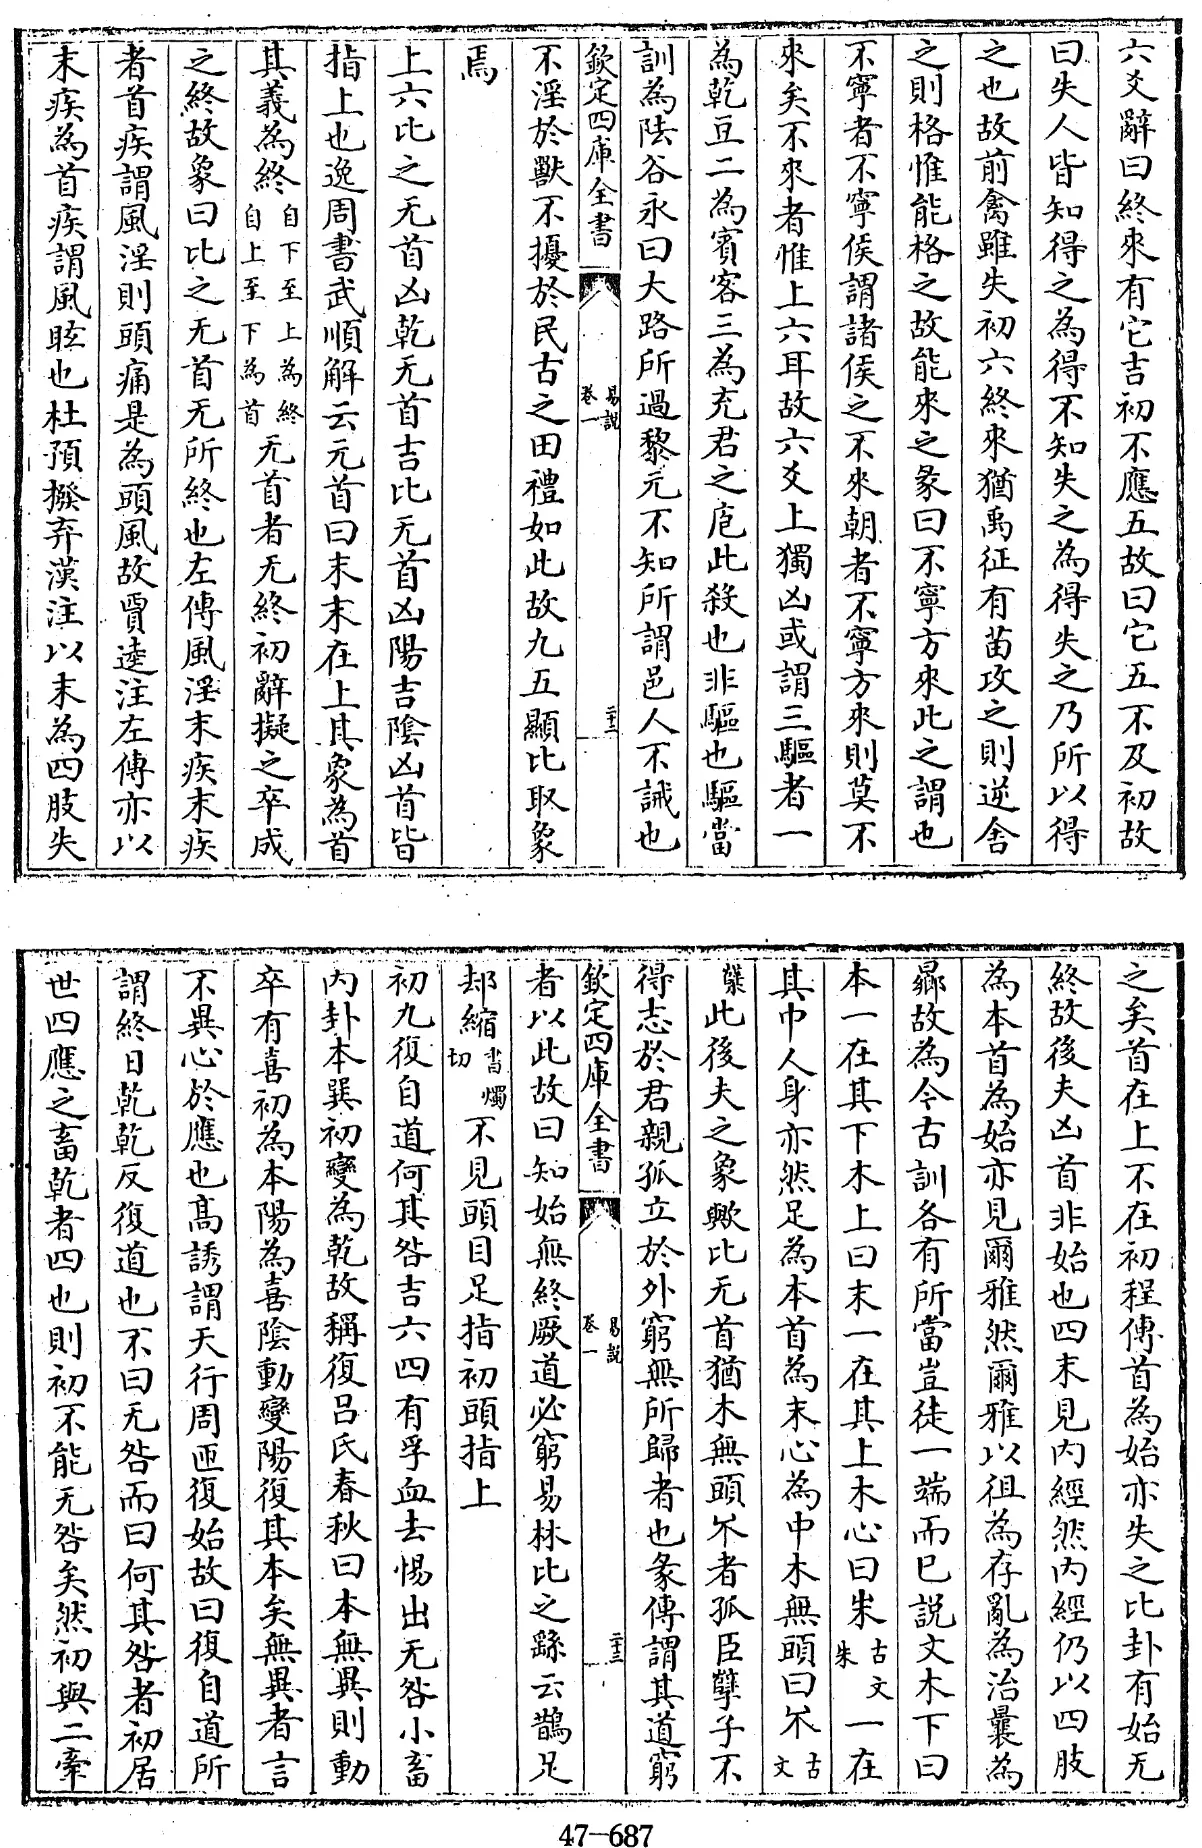 六爻辭曰終來有它吉初不應五故曰它五不及初故
曰失人皆知得之為得不知失之為得失之乃所以得
之也故前禽雖失初六終來猶禹征有苗攻之則逆舍
之則格惟能格之故能來之彖曰不寧方來此之謂也
不寧者不寧侯謂諸侯之不來朝者不寧方來則莫不
來矣不來者惟上六耳故六爻上獨凶或謂三驅者一
為乾豆二為賓客三為充君之庖此殺也非驅也驅當
訓為阹谷永曰大路所過黎元不知所謂邑人不誡也
欽定四庫全書
易說
卷一
二十二
不淫於獸不擾於民古之田禮如此故九五顯比取象
焉
上六比之无首凶乾无首吉比无首凶陽吉陰凶首皆
指上也逸周書武順解云元首曰末末在上其象為首
其義為終自下至上為終自上至下為首无首者无終初辭擬之卒成
之終故象曰比之无首无所終也左傳風淫末疾末疾
者首疾謂風淫則頭痛是為頭風故賈逵注左傳亦以
末疾為首疾謂風眩也杜預撥弃漢注以末為四肢失
之矣首在上不在初程傳首為始亦失之比卦有始无
終故後夫凶首非始也四末見內經然內經仍以四肢
為本首為始亦見爾雅然爾雅以徂為存亂為治曩為
曏故為今古訓各有所當豈徒一端而已說文木下曰
本一在其下木上曰末一在其上木心曰朱古文朱一在
其中人身亦然足為本首為末心為中木無頭曰不古文
櫱此後夫之象歟比无首猶木無頭不者孤臣孽子不
得志於君親孤立於外窮無所歸者也彖傳謂其道窮
欽定四庫全書
易說
卷一
二十三
者以此故曰知始無終厥道必窮易林比之繇云鵲足
却縮書燭切不見頭目足指初頭指上
初九復自道何其咎吉六四有孚血去惕出无咎小畜
內卦本巽初變為乾故稱復呂氏春秋曰本無異則動
卒有喜初為本陽為喜陰動變陽復其本矣無異者言
不異心於應也高誘謂天行周匝復始故曰復自道所
謂終日乾乾反復道也不曰无咎而曰何其咎者初居
世四應之畜乾者四也則初不能无咎矣然初與二牽
47-687